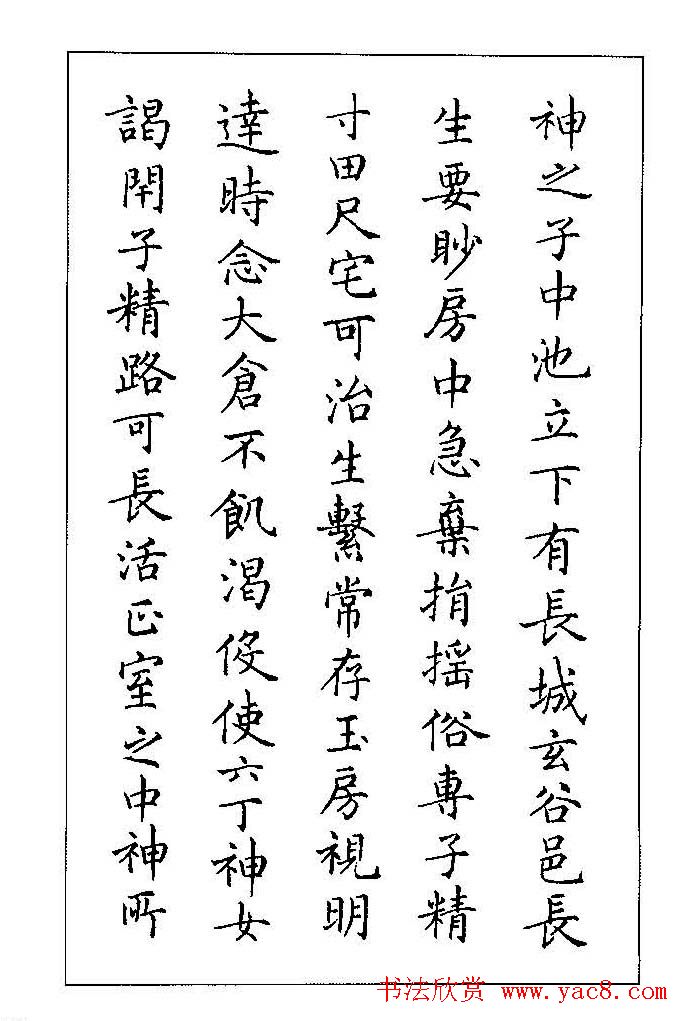 神之子中池立下有長城玄谷邑長
生要眇房中急棄捐摇俗專子精
寸田尺宅可治生繫常存玉房視明
達時念大倉不飢渴役使六丁神女
謁閇子精路可長活正室之中神所
书法欣赏 www.yac8.com